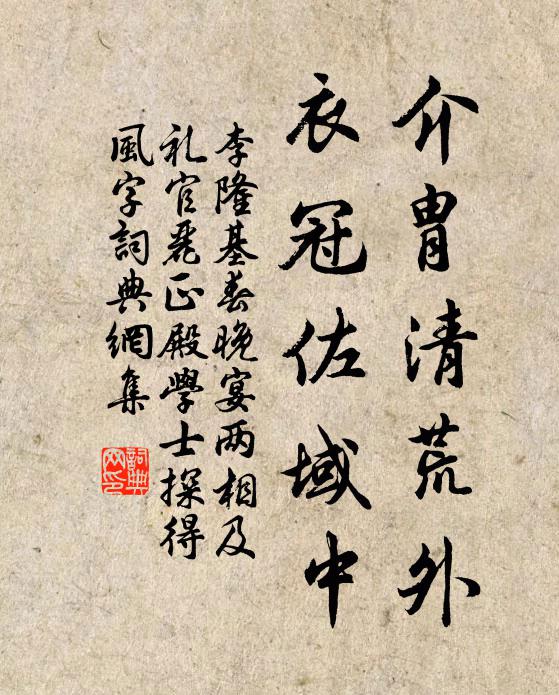 介胄清荒外
衣冠佐域中
李隆基春晚宴两相及
礼官丽正殿學士探得
風字詞典網集
詞典網印